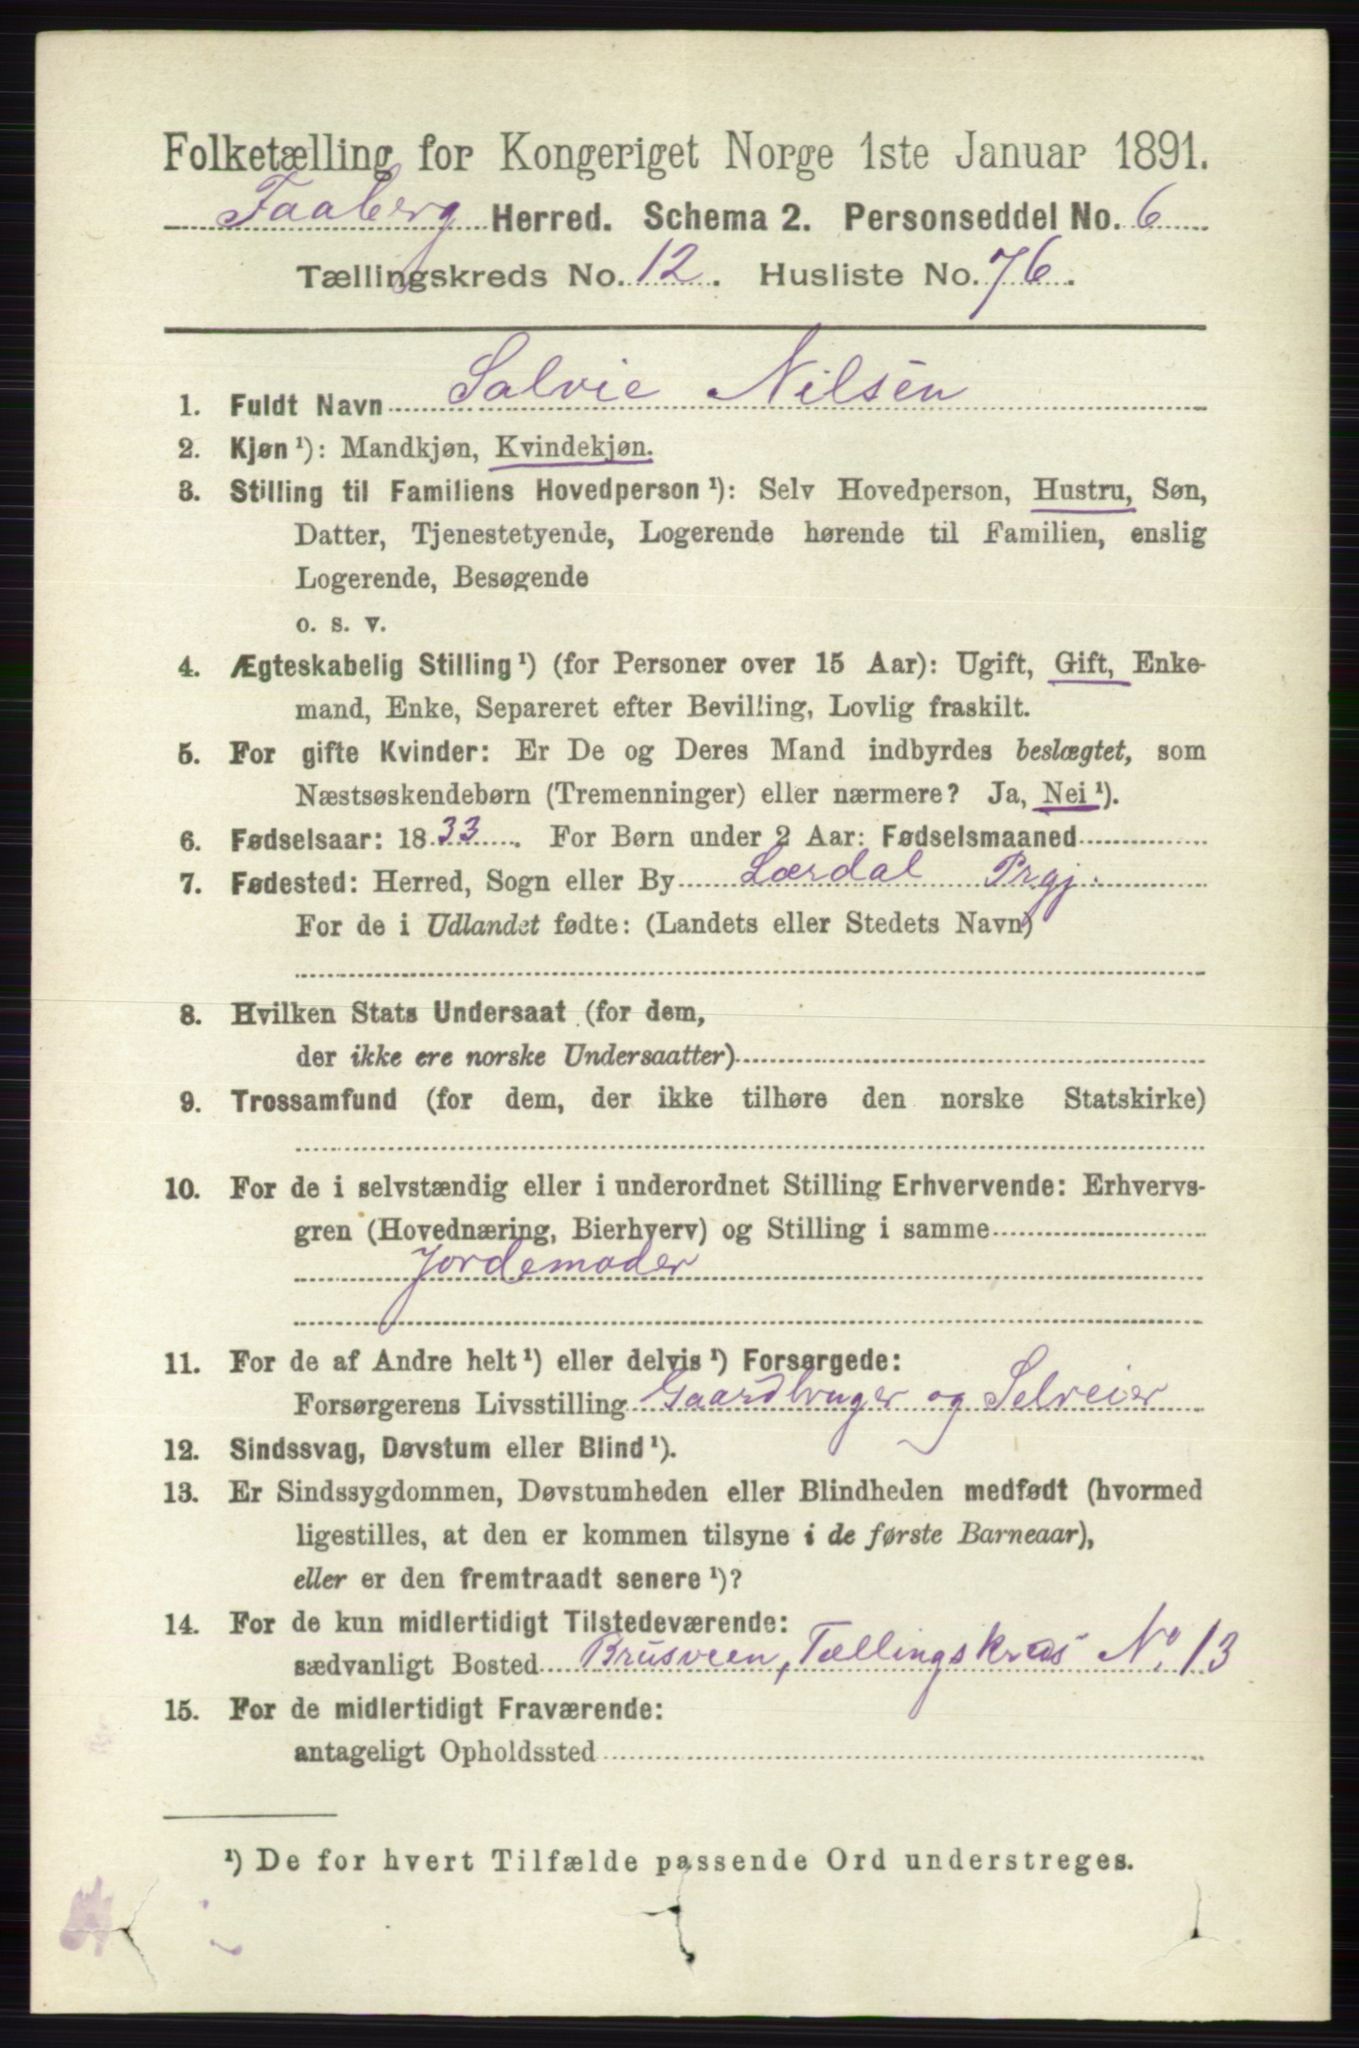 Folketælling for Kongeriget Norge 1ste Januar 1891.
Faaberg Herred. Schema 2. Personseddel No. 6
Tællingskreds No. 12. Husliste No. 76.
1. Fuldt Navn Solvie Nilsen
2. Kjøn ¹): Mandkjøn, Kvindekjøn.
3. Stilling til Familiens Hovedperson ¹): Selv Hovedperson, Hustru, Søn,
Datter, Tjenestetyende, Logerende hørende til Familien, enslig
Logerende, Besøgende
o. s. v.
4. Ægteskabelig Stilling ¹) (for Personer over 15 Aar): Ugift, Gift, Enke-
mand, Enke, Separeret efter Bevilling, Lovlig fraskilt.
5. For gifte Kvinder: Er De og Deres Mand indbyrdes beslægtet, som
Næstsøskendebørn (Tremenninger) eller nærmere? Ja, Nei ¹).
6. Fødselsaar: 1833. For Børn under 2 Aar: Fødselsmaaned
7. Fødested: Herred, Sogn eller By Lærdal Prgj.
For de i Udlandet fødte: (Landets eller Stedets Navn)
8. Hvilken Stats Undersaat (for dem,
der ikke ere norske Undersaatter)
9. Trossamfund (for dem, der ikke tilhøre den norske Statskirke)
10. For de i selvstændig eller i underordnet Stilling Erhvervende: Erhvervs-
gren (Hovednæring, Bierhverv) og Stilling i samme
Jordemoder
11. For de af Andre helt ¹) eller delvis ¹) Forsørgede:
Forsørgerens Livsstilling Gaardbruger og Selveier
12. Sindssvag, Døvstum eller Blind ¹).
13. Er Sindssygdommen, Døvstumheden eller Blindheden medfødt (hvormed
ligestilles, at den er kommen tilsyne i de første Barneaar),
eller er den fremtraadt senere ¹)?
14. For de kun midlertidigt Tilstedeværende:
sædvanligt Bosted Brusveen, Tællingskreds No. 13
15. For de midlertidigt Fraværende:
antageligt Opholdssted
¹) De for hvert Tilfælde passende Ord understreges.